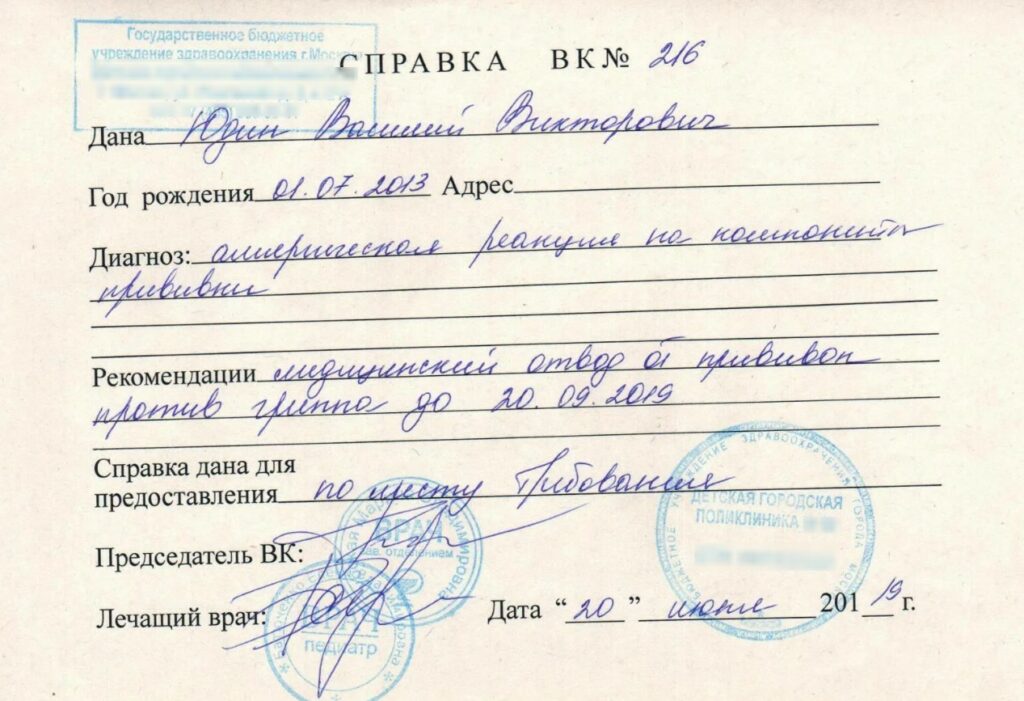 Государственное бюджетное
учреждение здравоохранения г.Москвы
СПРАВКА ВК№ 216
Дана Юдин Василий Викторович
Год рождения 01.07.2013 Адрес
Диагноз: аллергическая реакция на компоненты
прививки
Рекомендации медицинский отвод от прививок
против гриппа до 20.09.2019
Справка дана для
предоставления по месту Требования
Председатель ВК:
Лечащий врач:
Дата “20” июля 2019 г.
ВРАЧ
зав. отделением
ВРАЧ
педиатр
ДЕТСКАЯ ГОРОДСКАЯ
ПОЛИКЛИНИКА
УЧРЕЖДЕНИЕ ЗДРАВООХРАНЕНИЯ ГОРОДА